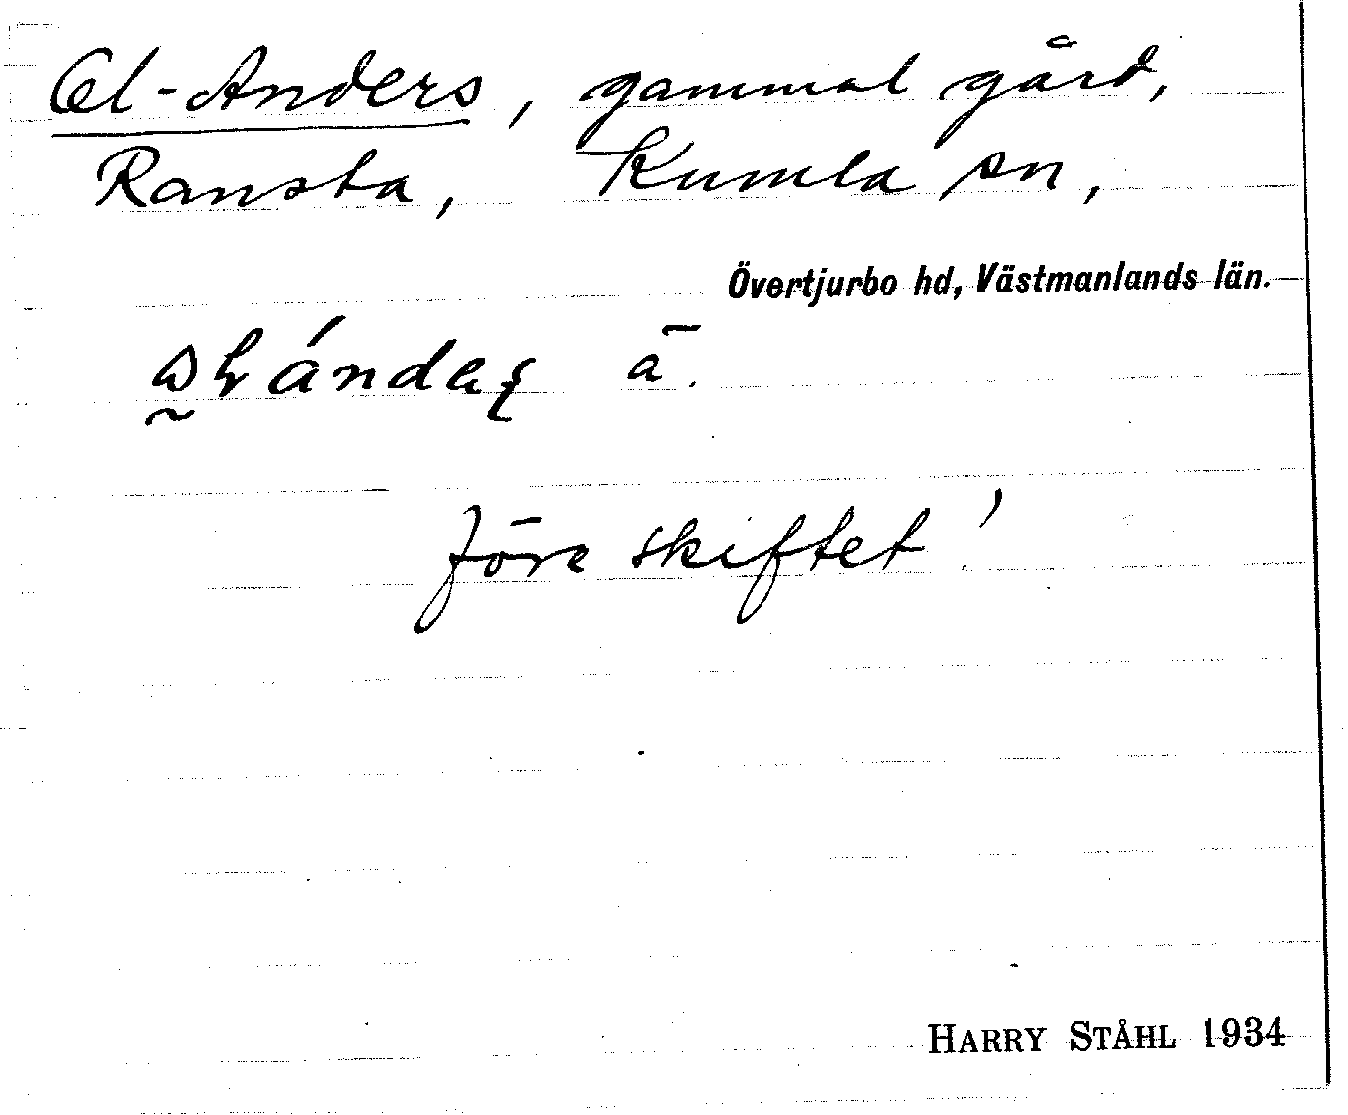 Ol-Anders, gammal gård,
Ransta, Kumla sn,
Övertjurbo hd, Västmanlands län.
ā.
före skiftet!
HARRY STÅHL 1934